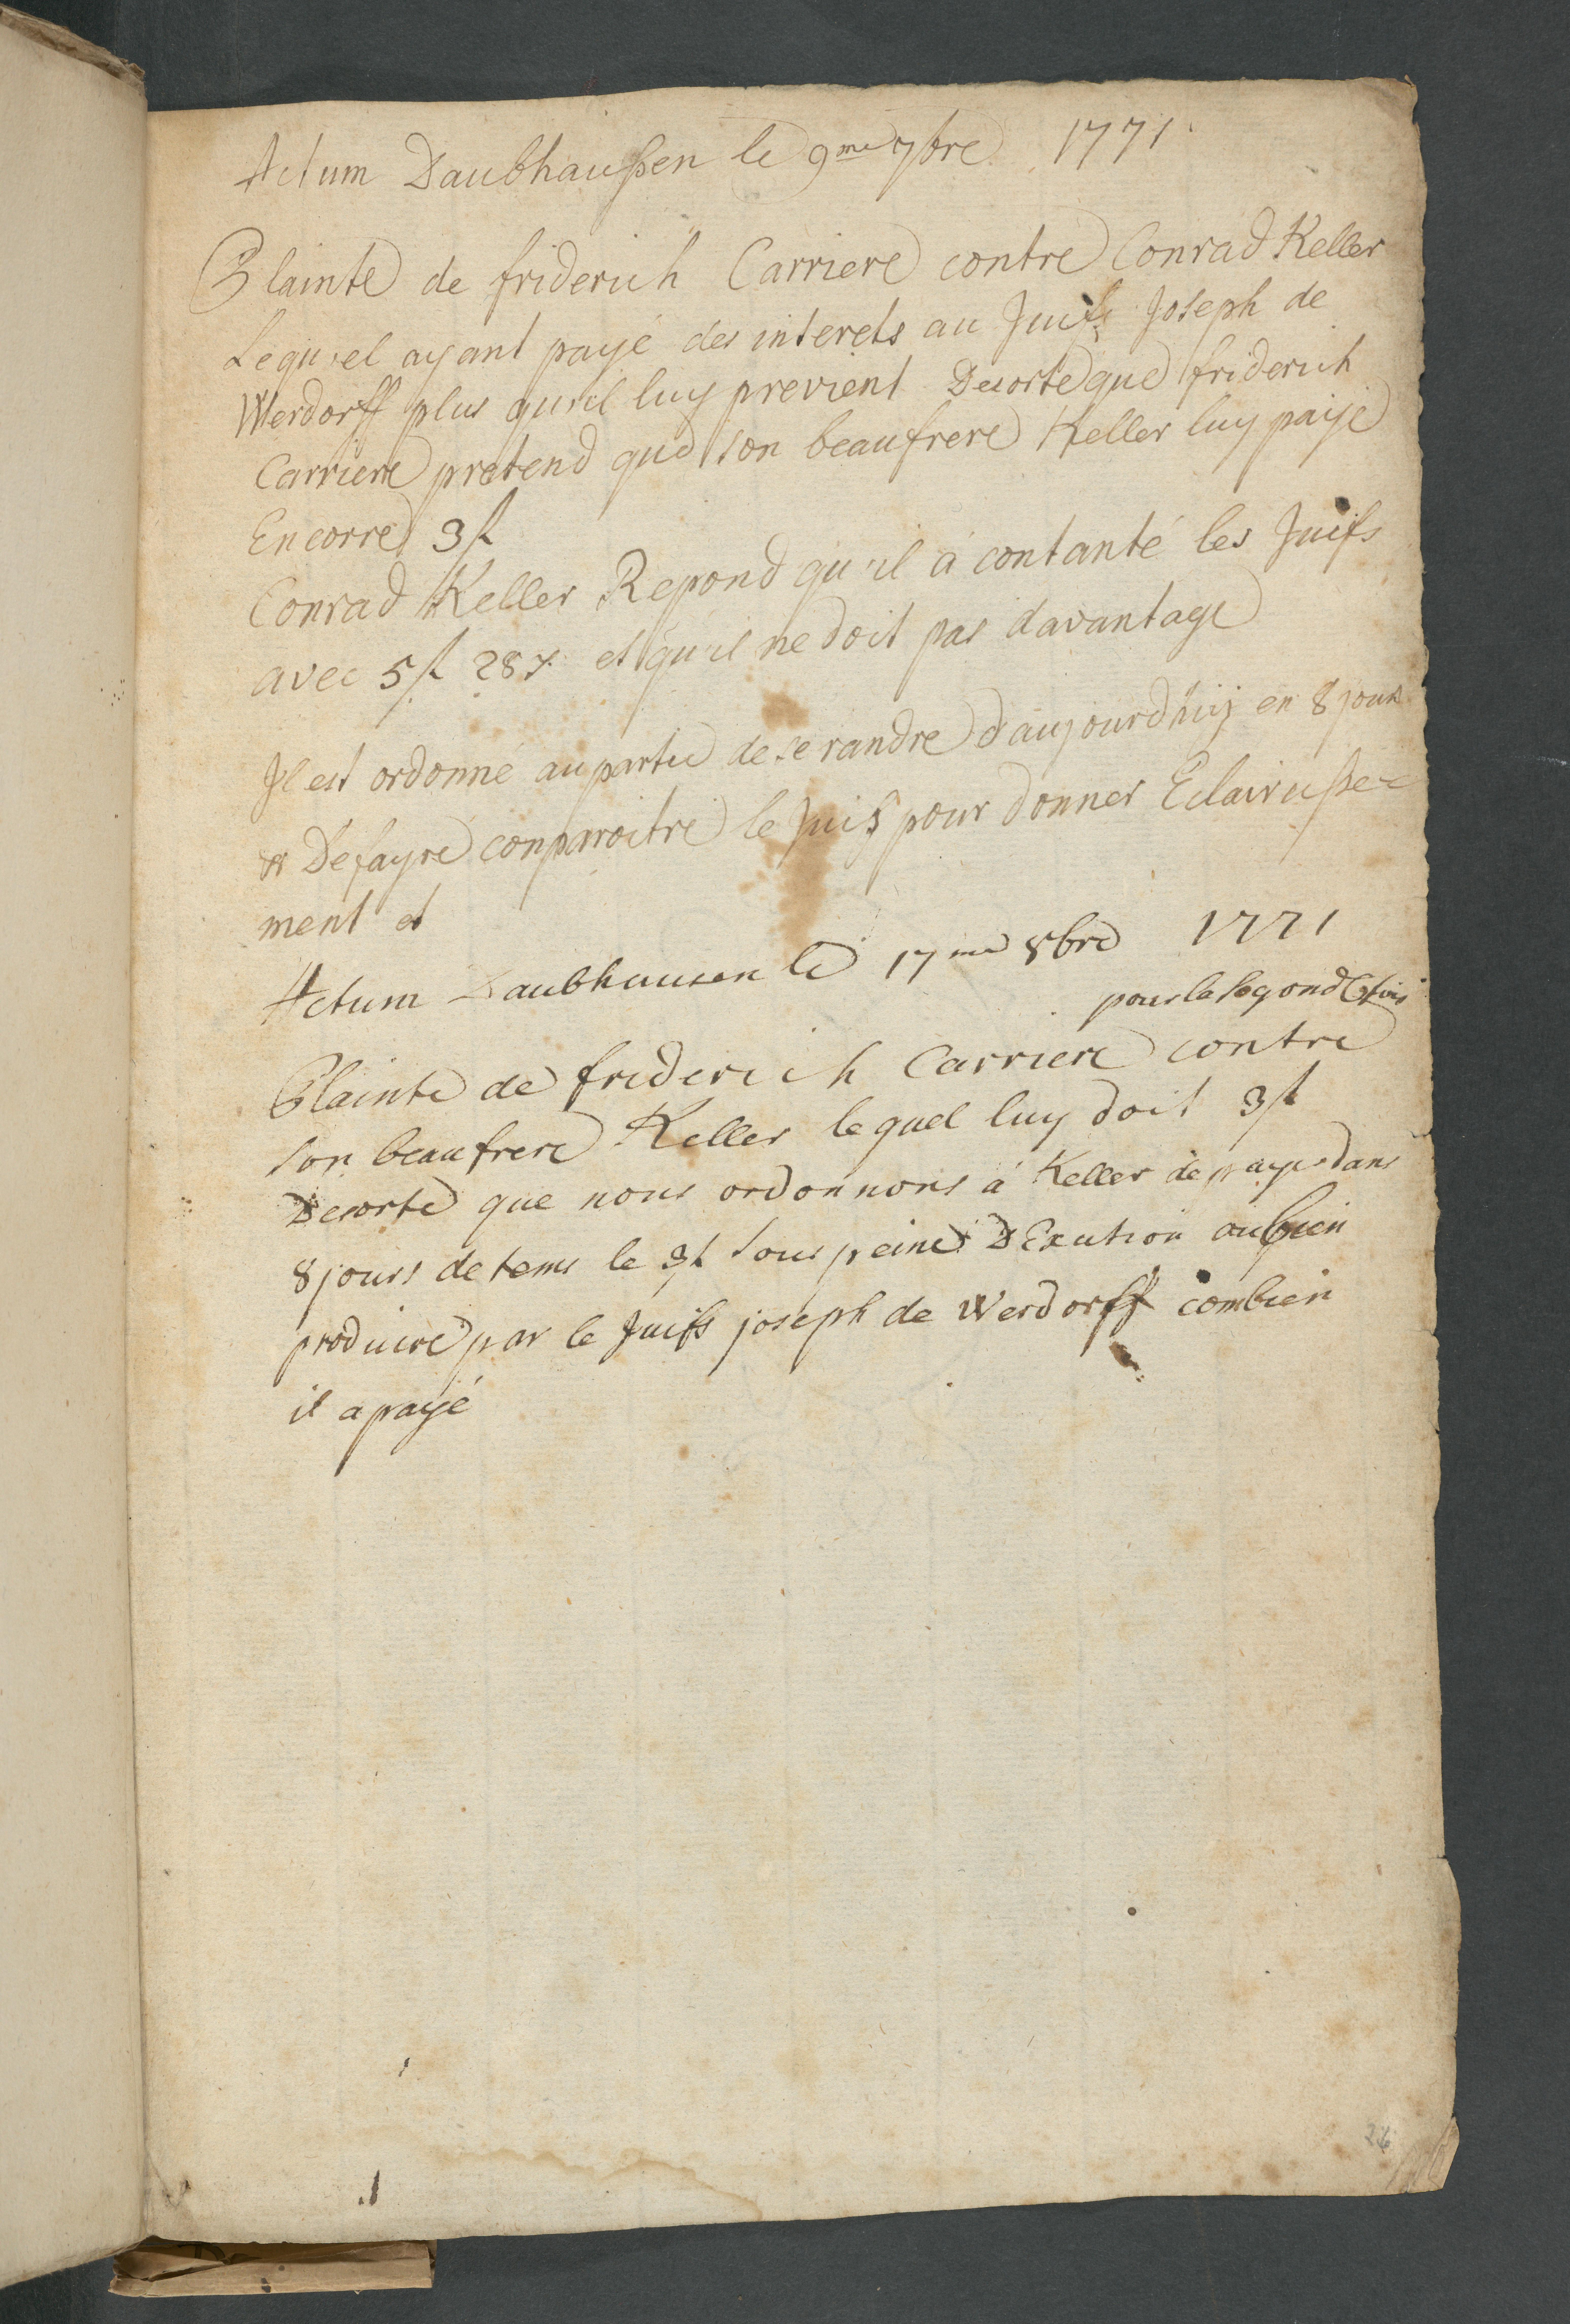 Actum Daubhaußen le 9me 7bre 1771
Plainte de friderich Carriere contre Conrad Keller
Lequ'el ayant payé des interets au Juifs Joseph de
Werdorff plus qu'il luy previent Desorte que friderich
Carriere pretend que son beaufrere Keller luy paye
Encorre 3f
Conrad Keller Repond qu'il a contanté les Juifs
avec 5f 28x et qu'il ne doit pas davantage
Il est ordonné au partie de se randre d'aujourdhuy en 8 jours
& De fayre conparroitre le Juif pour donner Eclairciße=
ment et
Actum Daubhausen le 17me 8bre 1771
pour la segonde fois
Plainte de friderich Carriere contre
son beaufrere Keller lequel luy doit 3f
Desorte que nous ordonnons á Keller de payer dans
8 jours de tems le 3f sous peine D'Exution oubien
produire par le Juifs joseph de Werdorff combien
il a payé
24